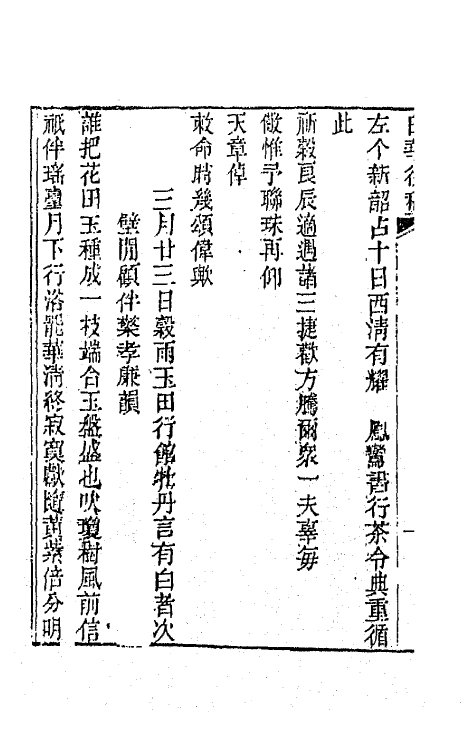 白華後稿
左个新韶占十日西淸有耀　鳳鸞詔行茶令典重循
此
祈穀良辰適遇諸三捷歡方騰爾衆一夫辜毎
儆惟予聯珠再仰
天章倬
敕命時幾頌偉歟
三月廿三日穀雨玉田行館牡丹言有白者次
壁間顧伴檗孝廉韻
誰把花田玉種成一枝端合玉盤盛也吹瓊樹風前信
祇伴瑤臺月下行浴罷華淸終寂寞獻隨黃紫倍分明